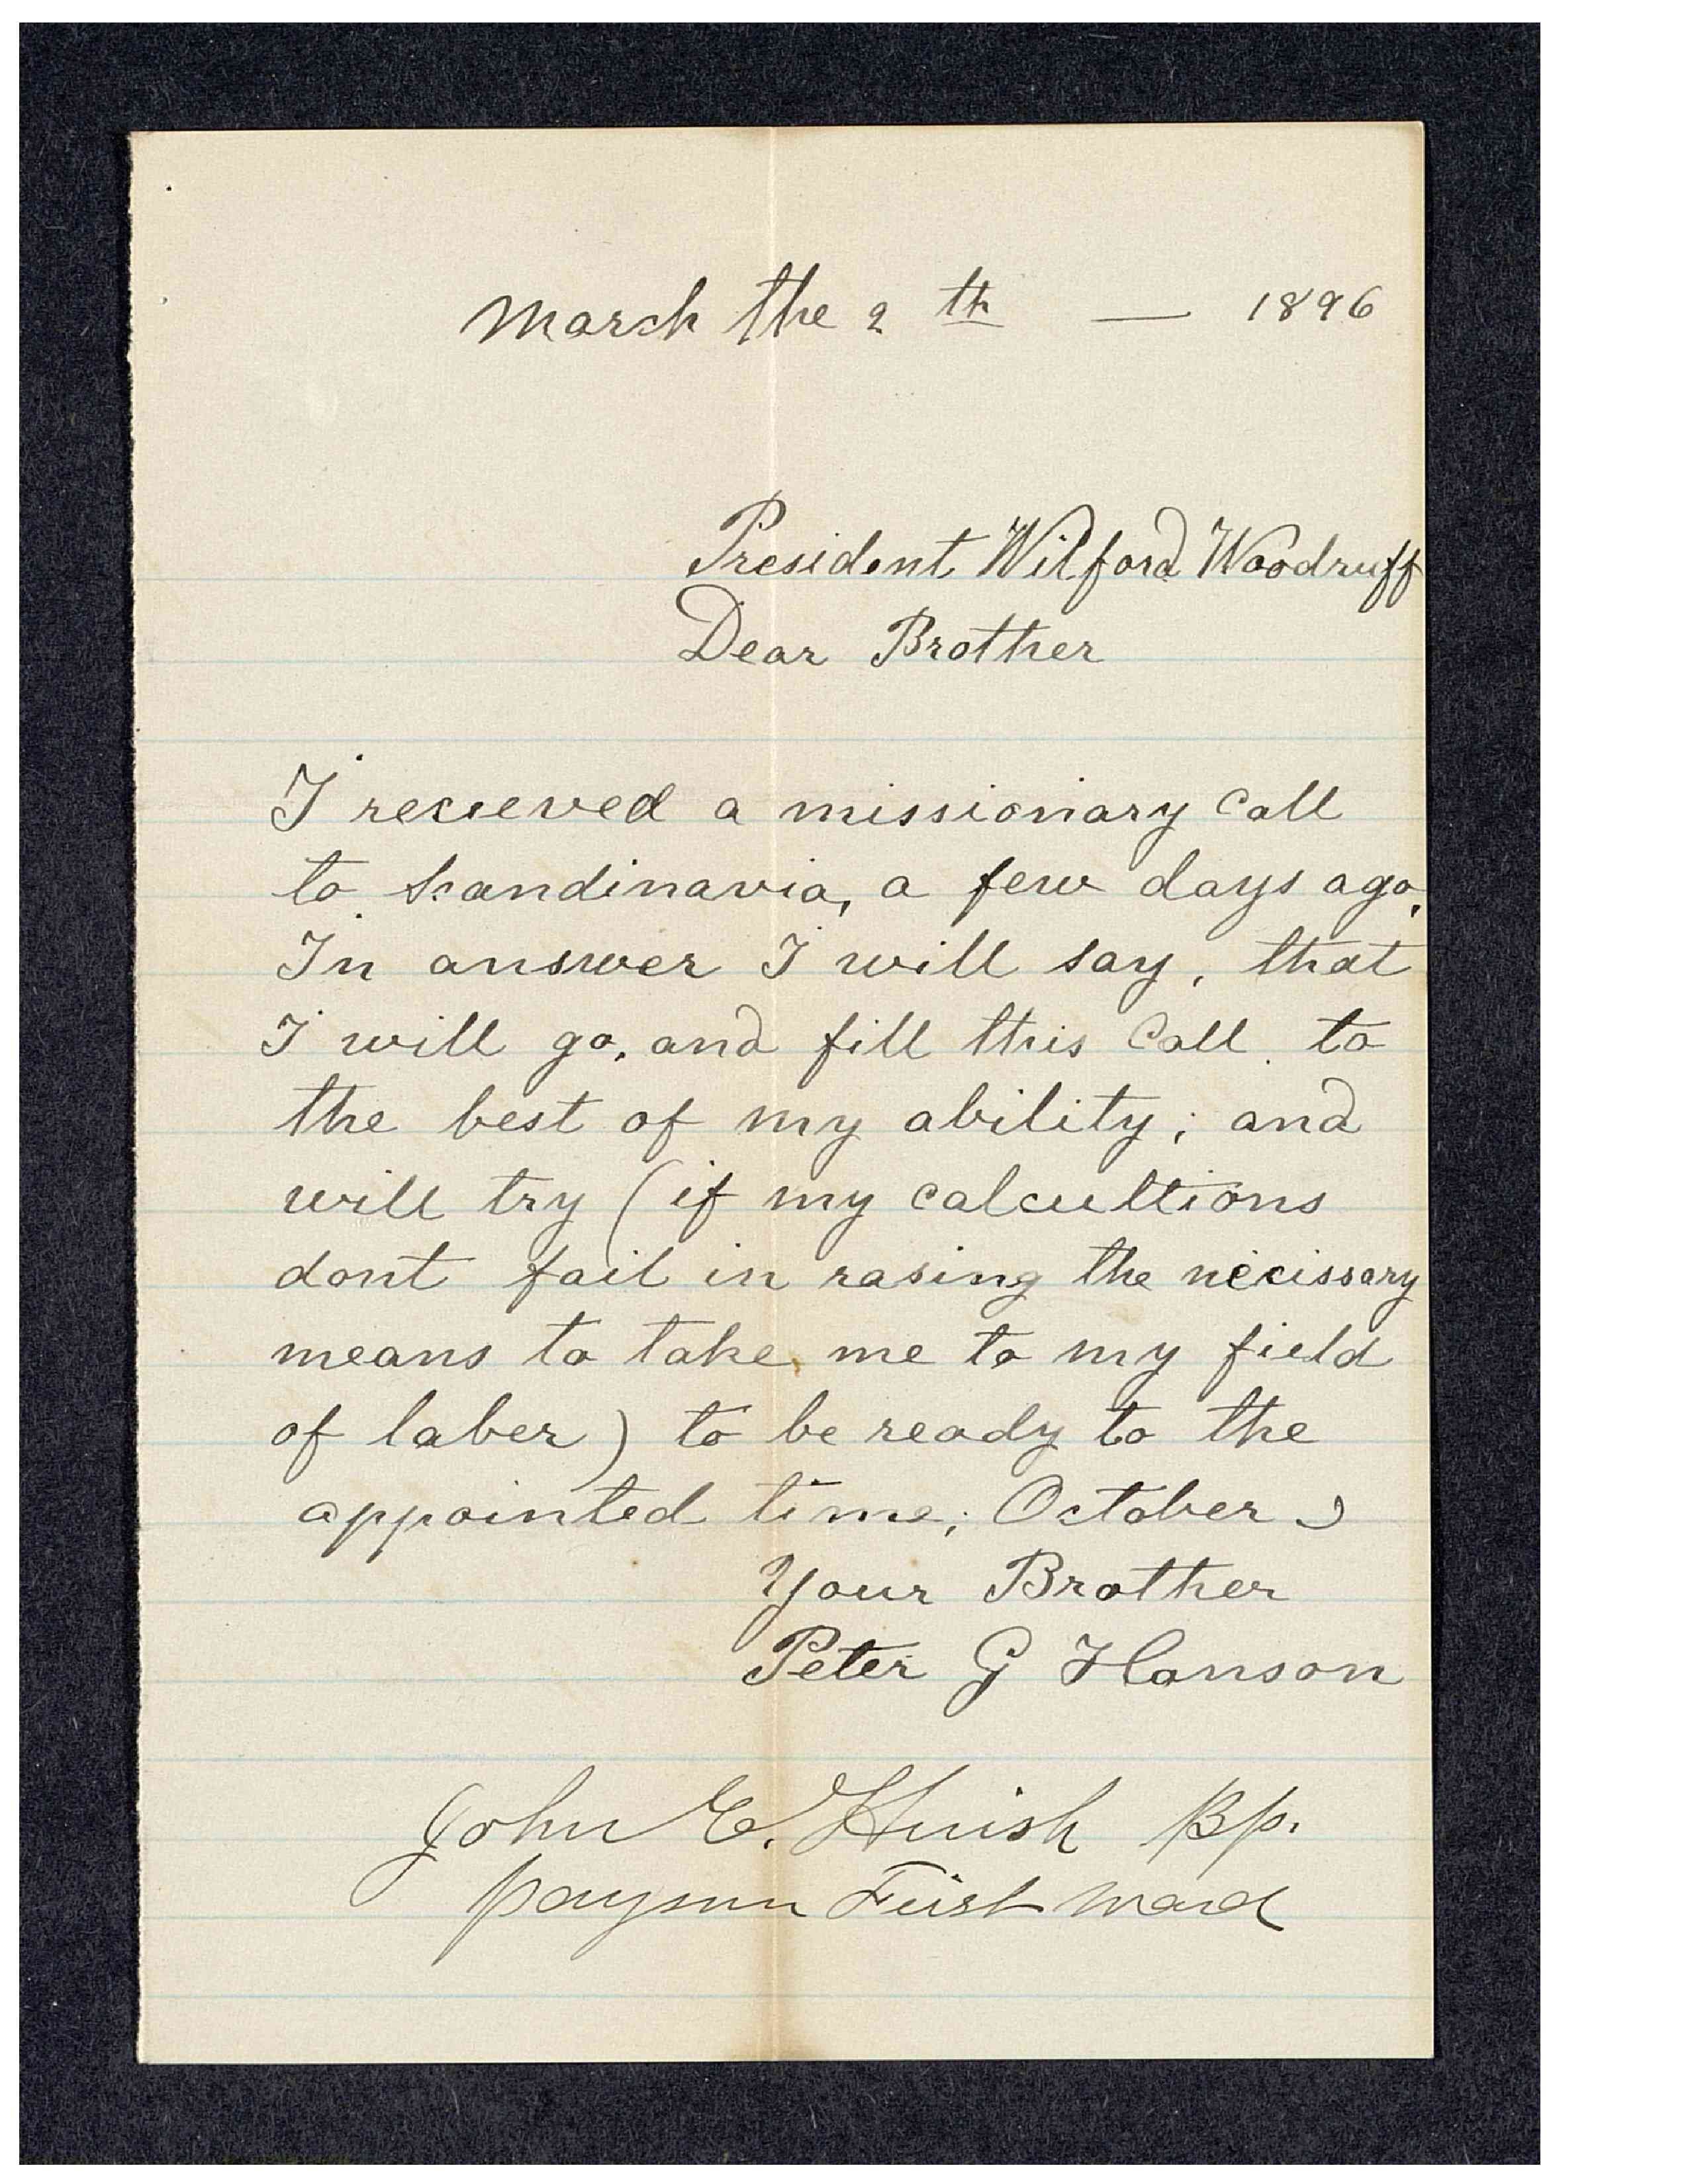 March the 2 th — 1896
President Wilford Woodruff
Dear Brother
I recieved a missionary Call
to Scandinavia, a few days ago,
In answer I will say, that
I will go, and fill this Call to
the best of my ability; and
will try (if my calcultions
dont fail in rasing the necissary
means to take me to my field
of laber) to be ready to the
appointed time; October
Your Brother
Peter G Hanson
John E. Huish Bp.
Payson First Ward